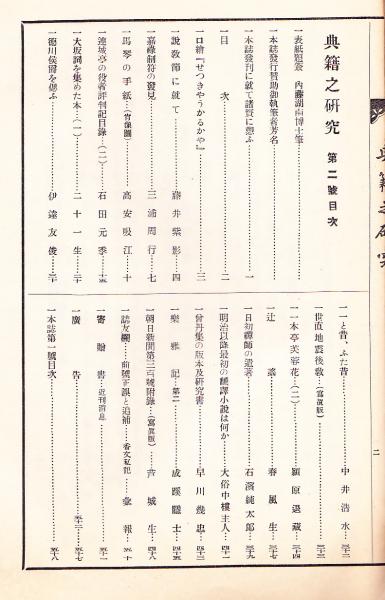 典籍之研究 第二號目次
一表紙題簽 內藤湖南博士筆
一本誌發行贊助御執筆者芳名
一本誌發刊に就て諸賢に愬ふ……一
一目次……二
一口繪『せつきやうかるかや』……三
一說敎節に就て……藤井紫影…四
一嘉祿制符の發見……三浦周行…七
一馬琴の手紙……(寫眞版)……高安吸江…十
一連城亭の役者評判記目錄…(二)…石田元季…
一大坂詞を集めた本…(一)……二十一生…
一德川侯爵を偲ふ……伊達友俊…三十
一一と昔、ふた昔……中井浩水…三十二
一世直地震後敎…(寫眞版)……三十三
一一本亭芙蓉花…(二)……潁原退藏…三十四
一辻談義……春風生…三十七
一日初禪師の遺著……石濱純太郎…三十九
一明治以降最初の飜譯小說は何か…大俗中樓主人…四十一
一曾丹集の版本及硏究書……早川幾忠…四十三
樂雅記…第二……成蹊隱士…四十五
一朝日新聞第三百號附錄…(寫眞版)…芦城生…四十八
一誌友欄……前號正誤と追補……香文私記…彙報…五十
一寄贈書…近刊消息……五十一
一廣告……五十七
一本誌第一號目次……五十八
二